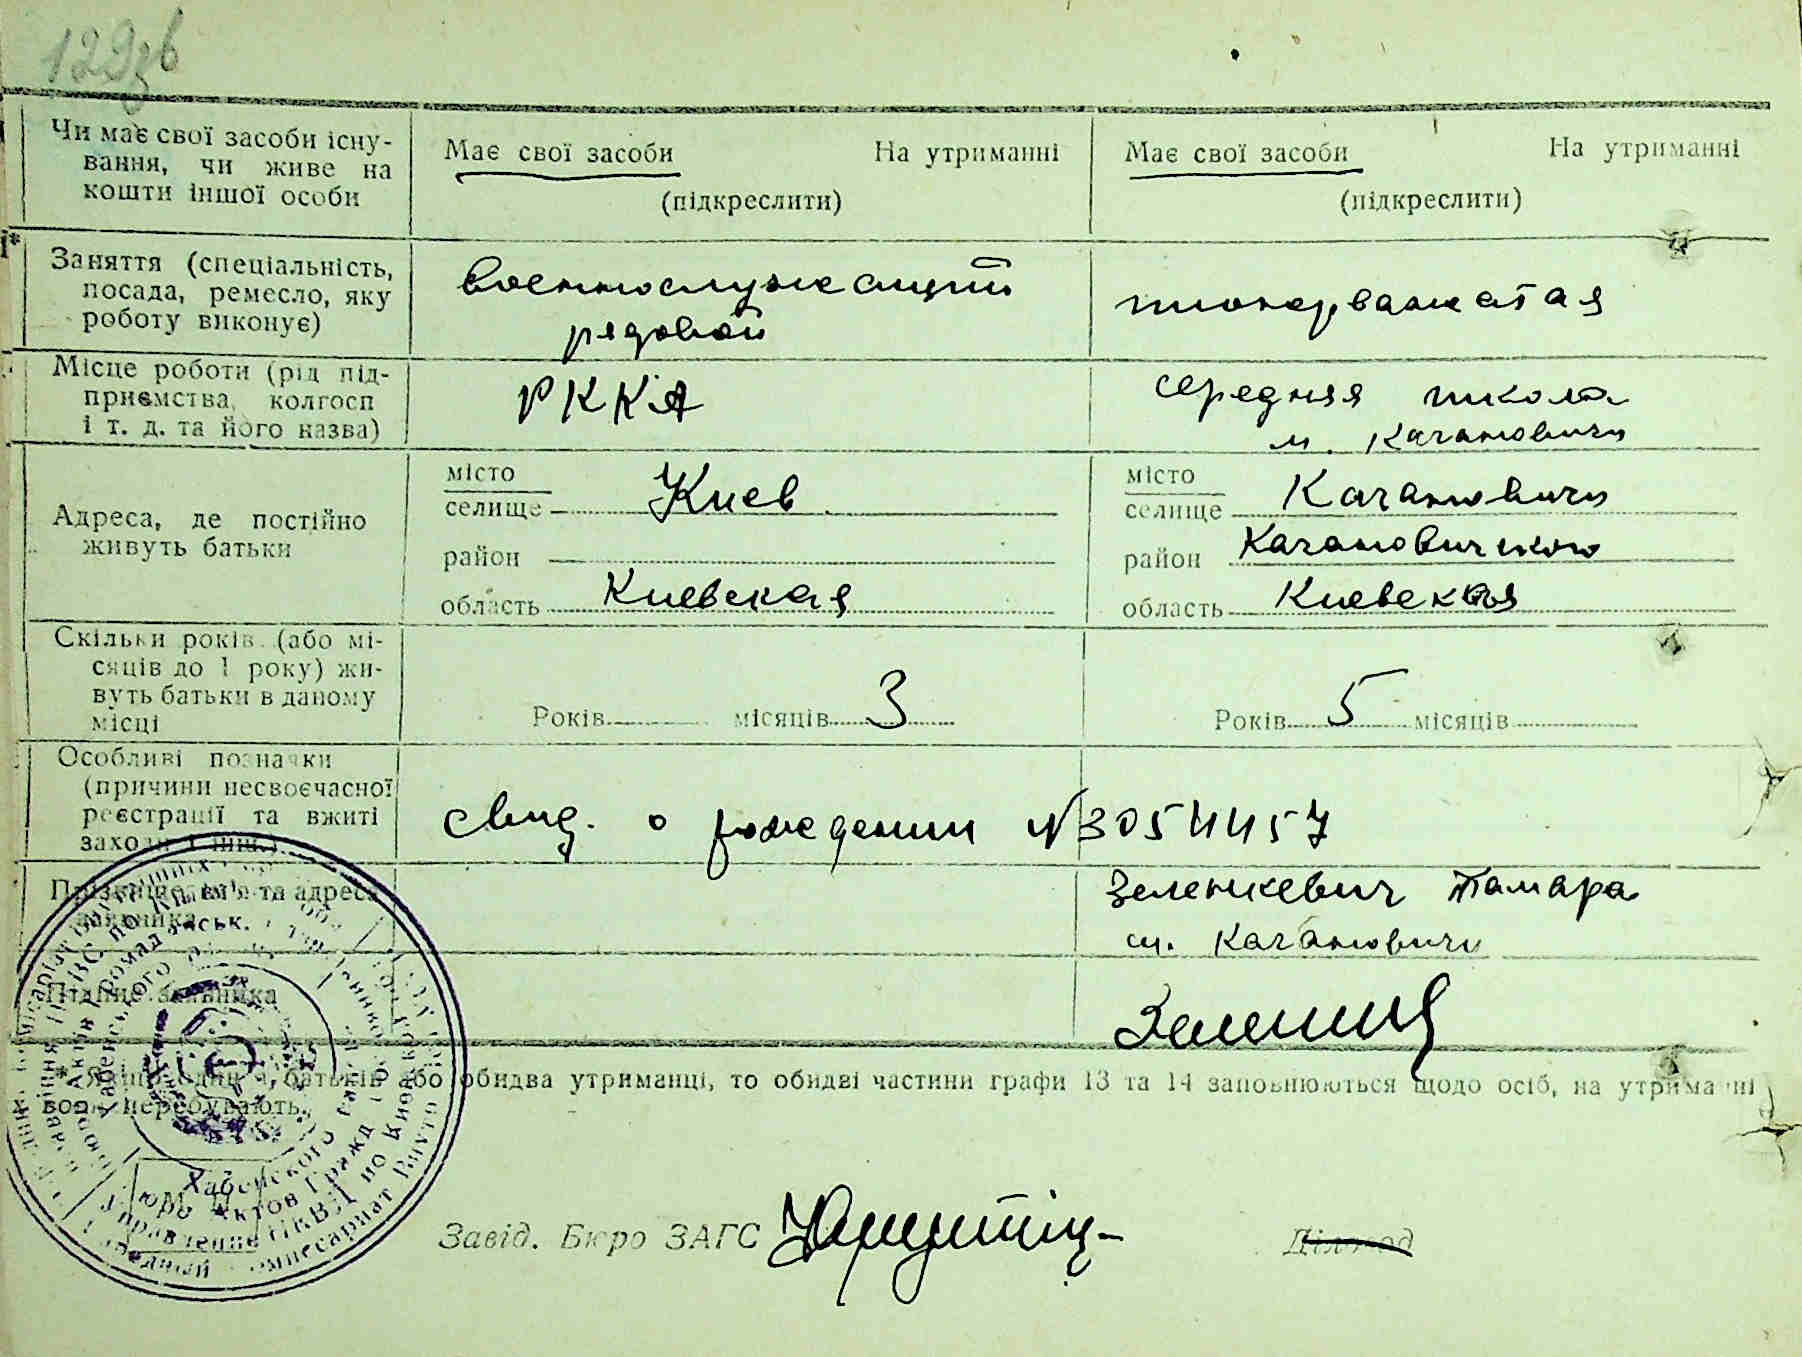 129зв
Чи має свої засоби існу-
вання, чи живе на
кошти іншої особи
Має свої засоби На утриманні
(підкреслити)
Має свої засоби На утриманні
(підкреслити)
Заняття (спеціальність,
посада, ремесло, яку
роботу виконує)
военнослужащий
рядовой
пионерважатая
Місце роботи (рід під-
приємства, колгосп
і т. д. та його назва)
РККА
середняя школа
м. Кагановичи
Адреса, де постійно
живуть батьки
місто
селище Киев
район
область Киевская
місто
селище Кагановичи
район Кагановичского
область Киевская
Скільки років (або мі-
сяців до 1 року) жи-
вуть батьки в даному
місці
Років місяців 3
Років 5 місяців
Особливі позначки
(причини несвоєчасної
реєстрації та вжиті
заходи і інш.)
свид. о рождении №3054457
Прізвище, ім'я та адреса
заявника
Зеленкевич Тамара
м. Кагановичи
Підпис заявника
* Якщо один з батьків або обидва утриманці, то обидві частини графи 13 та 14 заповнюються щодо осіб, на утриманні
х вони перебувають.
Завід. Бюро ЗАГС
Діловод